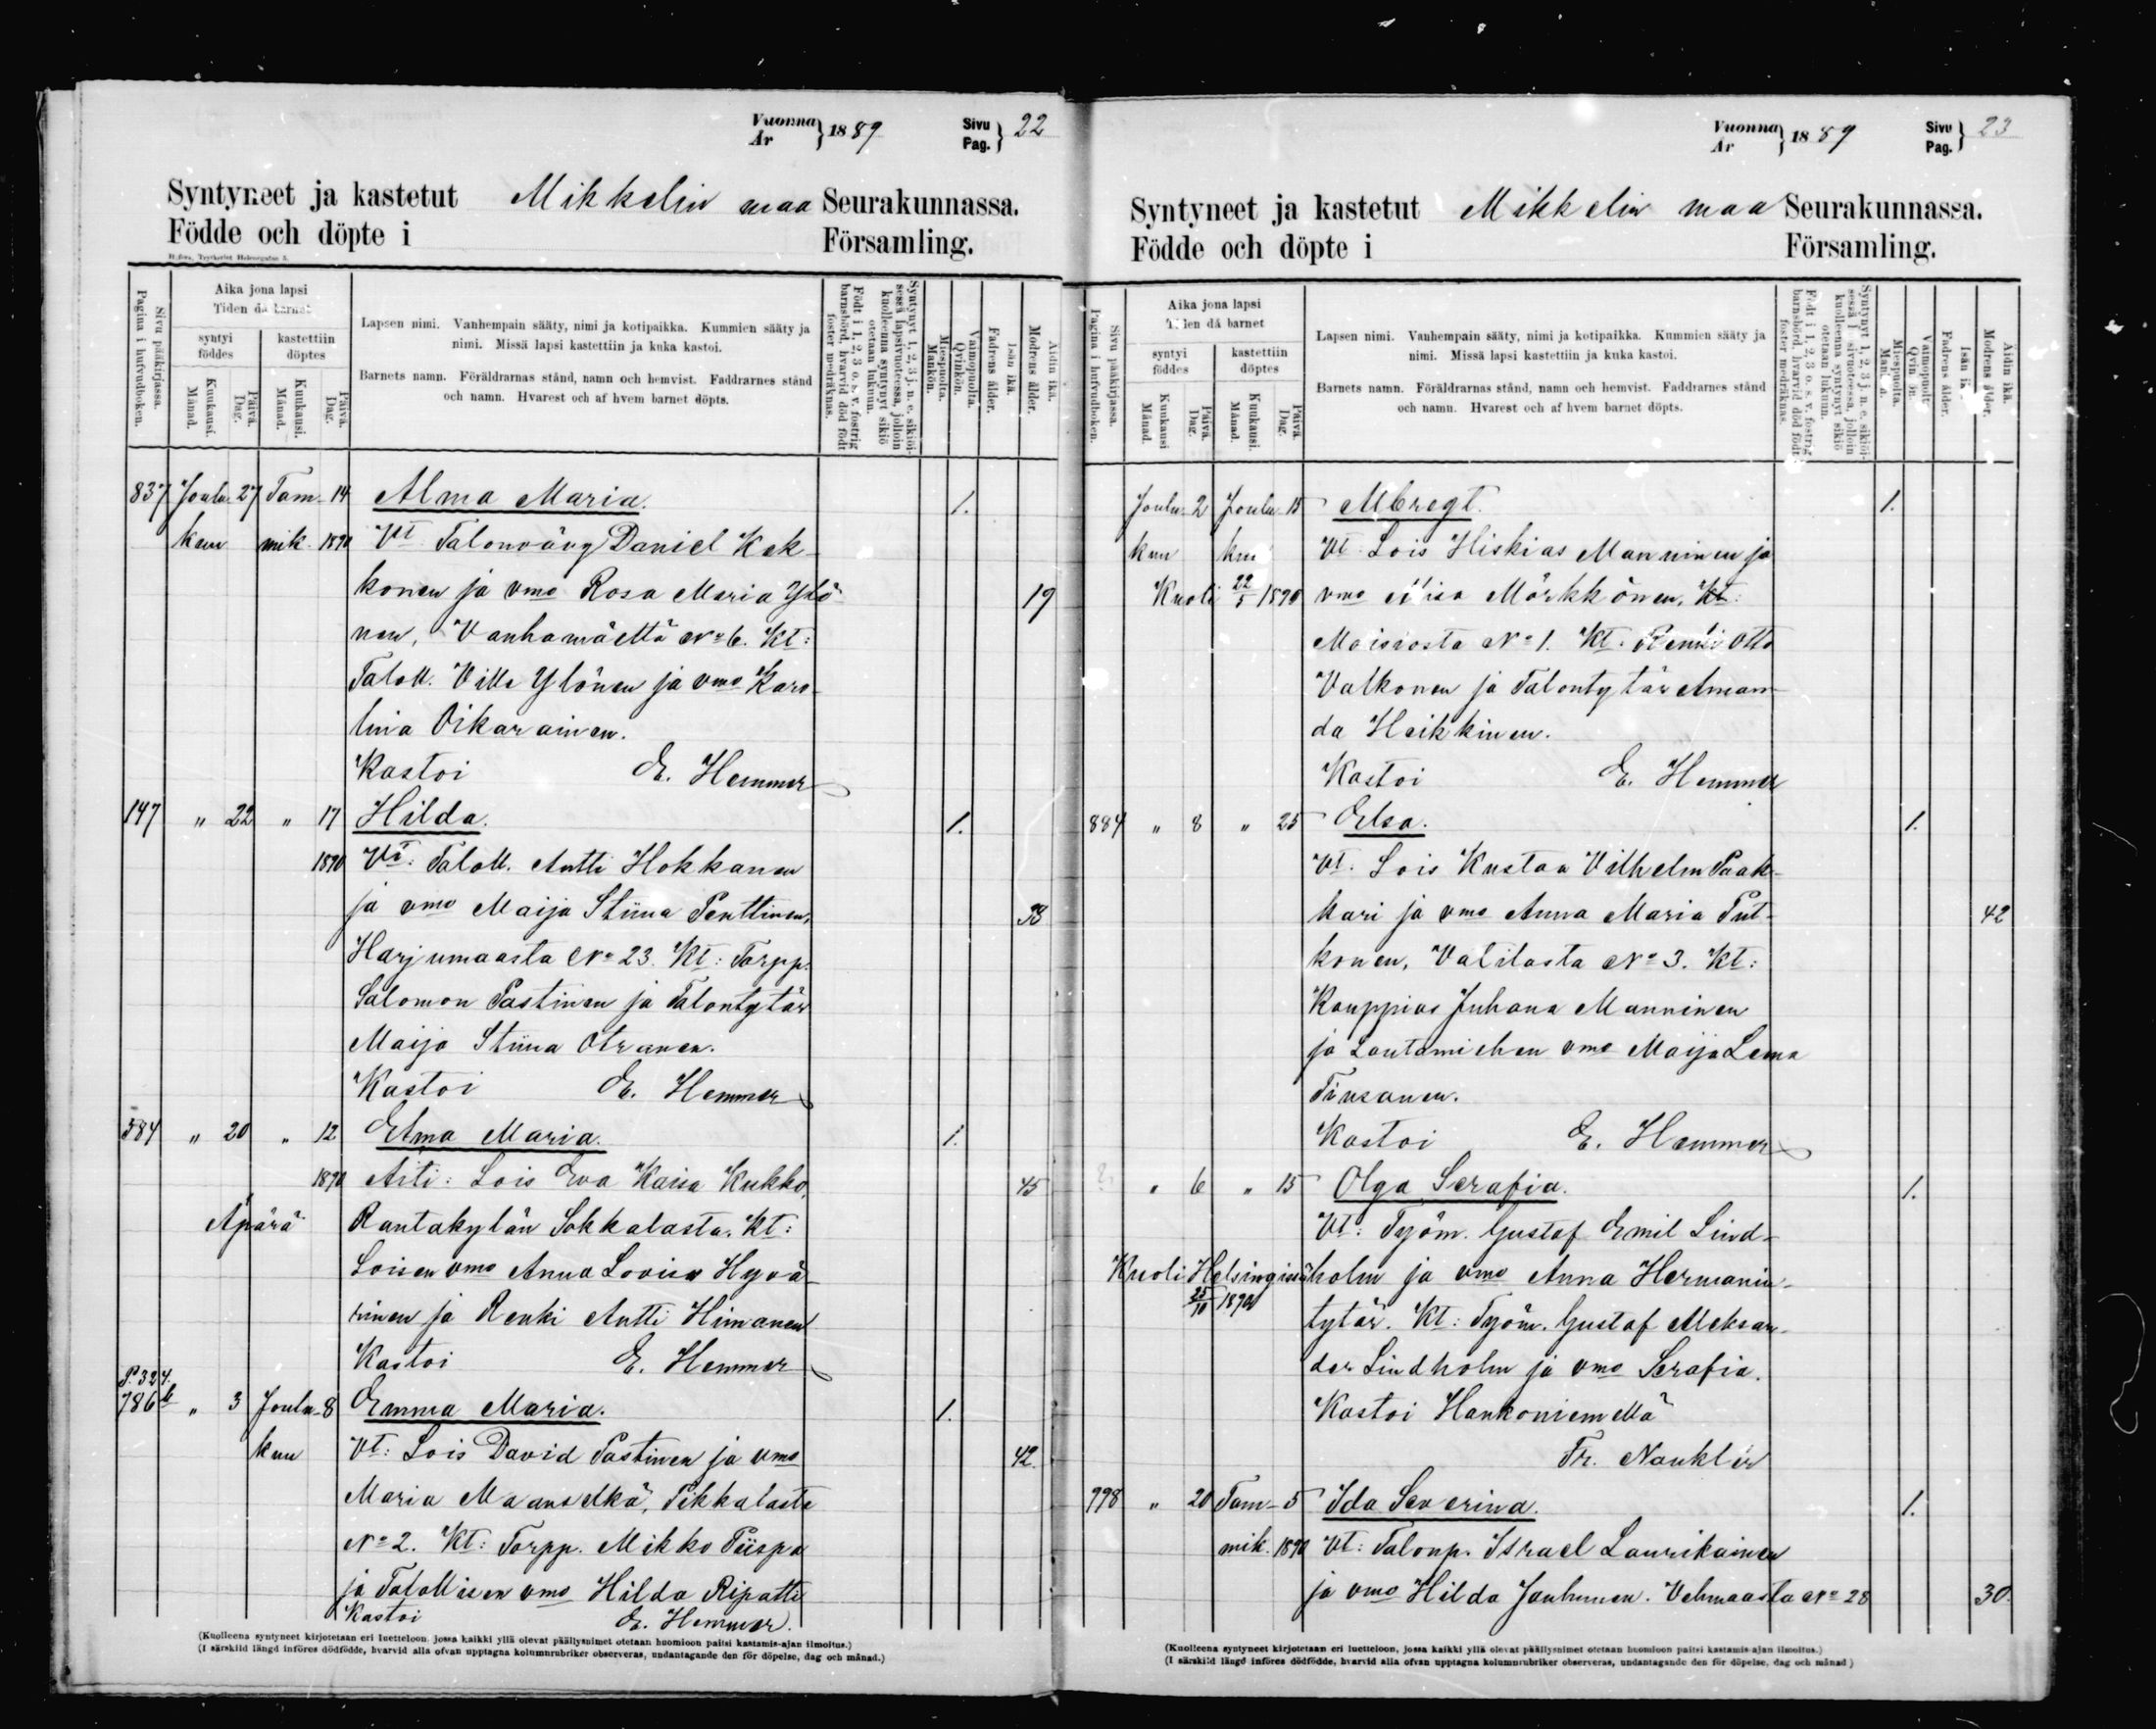 Vuonna
År } 1889 Sivu
Pag. } 22
Syntyneet ja kastetut Mikkelin maa Seurakunnassa.
Födde och döpte i Församling.
Sivu pääkirjassa.
Pagina i hufvudboken.
Aika jona lapsi
Tiden då barnet
syntyi
föddes
kastettiin
döptes
Kuukausi.
Månad.
Päivä.
Dag.
Kuukausi.
Månad.
Päivä.
Dag.
Lapsen nimi. Vanhempain sääty, nimi ja kotipaikka. Kummien sääty ja
nimi. Missä lapsi kastettiin ja kuka kastoi.
Barnets namn. Föräldrarnas stånd, namn och hemvist. Faddrarnes stånd
och namn. Hvarest och af hvem barnet döpts.
Syntynyt 1, 2, 3 j. n. e. sikiöi-
sessä lapsivuoteessa, jolloin
kuolleenna syntynyt sikiö
otetaan lukuun.
Födt i 1, 2, 3 o. s. v. fostrig
barnsbörd, hvarvid död födt
foster medräknas.
Miespuolta.
Mankön.
Vaimopuolta.
Qvinkön.
Isän ikä.
Fadrens ålder.
Äidin ikä.
Modrens ålder.
837 Joulu- 27 Tam- 14 Alma Maria. 1.
kuu mik. 1890 Vt Talonväug Daniel Kek-
konen ja vmo Rosa Maria Ylö- 19
nen, Vanhamäeltä No 6. Kt:
Taloll. Ville Ylönen ja vmo Karo-
lina Oikarainen.
Kastoi E. Hemmer
147 " 22 " 17 Hilda. 1.
1890 Vt: Taloll. Antti Hokkanen
ja vmo Maija Stiina Penttinen,
Harjumaasta No 23. Kt: Torpp.
Salomon Pastinen ja Talontytär
Maija Stiina Otranen.
Kastoi E. Hemmer
584 " 20 " 12 Elma Maria. 1.
1890 Äiti: Lois Eva Kaisa Kukko, 45
Äpärä Rantakylän Sokkalasta. Kt:
Loisen vmo Anna Lovisa Hyvä-
rinen ja Renki Antti Himanen
Kastoi E. Hemmer
P. 324.
786b " 3 Joulu- 8 Emma Maria. 1.
kuu Vt: Lois David Pastinen ja vmo 42.
Maria Maanselkä, Tikkalasta
No 2. Kt: Torpp. Mikko Piispa
ja Talollisen vmo Hilda Ripatti
Kastoi E. Hemmer.
(Kuolleena syntyneet kirjotetaan eri luetteloon, jossa kaikki yllä olevat päällysnimet otetaan huomioon paitsi kastamis-ajan ilmoitus.)
(I särskild längd införes dödfödde, hvarvid alla ofvan upptagna kolumnrubriker observeras, undantagande den för döpelse, dag och månad.)
Vuonna
År } 1889 Sivu
Pag. } 23
Syntyneet ja kastetut Mikkelin maa Seurakunnassa.
Födde och döpte i Församling.
Sivu pääkirjassa.
Pagina i hufvudboken.
Aika jona lapsi
Tiden då barnet
syntyi
föddes
kastettiin
döptes
Kuukausi
Månad.
Päivä.
Dag.
Kuukausi.
Månad.
Päivä.
Dag.
Lapsen nimi. Vanhempain sääty, nimi ja kotipaikka. Kummien sääty ja
nimi. Missä lapsi kastettiin ja kuka kastoi.
Barnets namn. Föräldrarnas stånd, namn och hemvist. Faddrarnes stånd
och namn. Hvarest och af hvem barnet döpts.
Syntynyt 1, 2, 3 j. n. e. sikiöi-
kuolleenna syntynyt sikiö
otetaan lukuun.
Födt i 1, 2, 3 o. s. v. fostrig
barnsbörd, hvarvid död födt
foster medräknas.
Miespuolta.
Vaimopuolt
Fadrens ålder.
Äidin ikä.
Modrens ålder.
Joulu- 2 Joulu- 15 Albregt. 1.
kuu kuu Vt. Lois Hiskias Manninen ja
Kuoli 22/5 1890 vmo Mörkkönen, Kt:
Moisiosta No 1. Kt: Renki Otto
Valkonen ja Talontytär Aman-
da Heikkinen.
Kastoi E. Hemmer
884 " 8 " 25 Elsa. 1.
Vt. Lois Kustaa Vilhelm Paak-
kari ja vmo Anna Maria Put- 42
konen, Valilasta No 3. Kt:
Kauppias Juhana Manninen
ja Lautamiehen vmo Maija Leena
Tiusanen.
Kastoi E. Hemmer
" 6 " 15 Olga Serafia. 1.
Vt: Työm. Gustaf Emil Lind-
Kuoli Helsingissä holm ja vmo Anna Hermanin-
25/10 1890 tytär. Kt: Työm. Gustaf Aleksan-
der Lindholm ja vmo Serafia.
Kastoi Hankoniemellä
Fr. Nauklér
998 " 20 Tam- 5 Ida Severina. 1.
mik. 1890 Vt: Talonp. Israel Laurikainen
ja vmo Hilda Jauhunen. Vehmaasta No 28 30.
(Kuolleena syntyneet kirjotetaan eri luetteloon, jossa kaikki yllä olevat päällysnimet otetaan huomioon paitsi kastamis-ajan ilmoitus.)
(I särskild längd införes dödfödde, hvarvid alla ofvan upptagna kolumnrubriker observeras, undantagande den för döpelse, dag och månad)